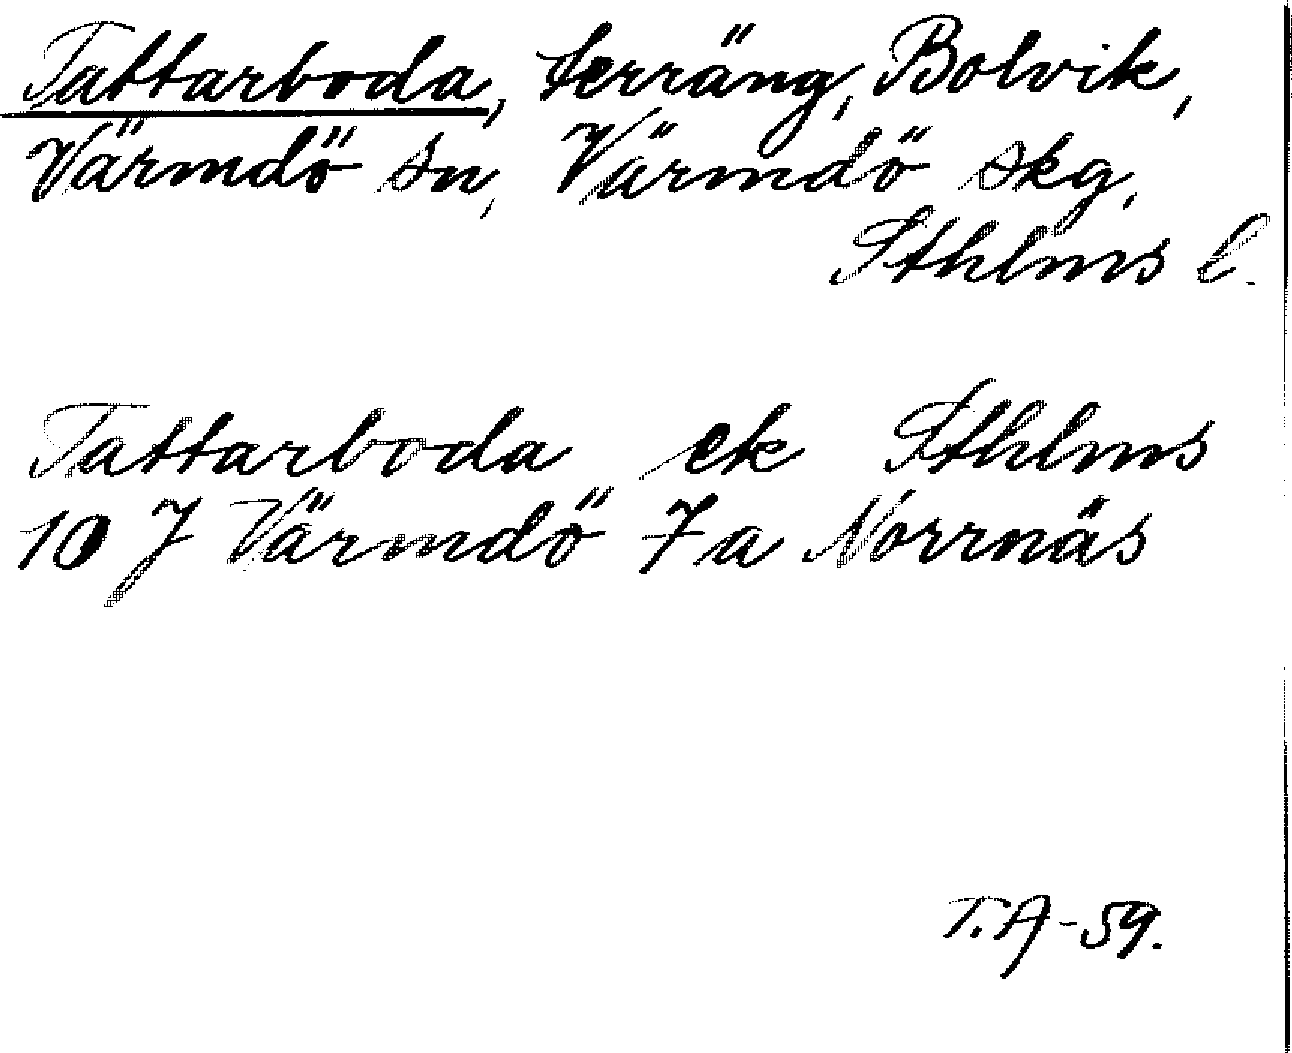 Tattarboda, terräng, Bolvik,
Värmdö sn, Värmdö skg,
Sthlms l.
Tattarboda ek Sthlms
10 J Värmdö 7a Norrnäs
T.A-59.